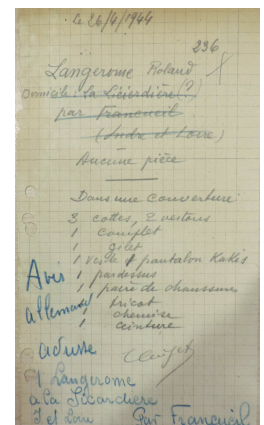 le 26/4/1944
236
Langerome Roland
Domicile: La Licierdière (?)
par Francueil
(Indre et Loire)
Aucune pièce
Dans une couverture:
3 cottes, 2 vestons
1 complet
1 gilet
1 veste 1 pantalon Kakis
1 pardessus
1 paire de chaussures
1 tricot
1 chemise
1 ceinture
Avis
allemand
adresse
1 Langerome
a La Sicardiere
I et Loire
Par Francueil